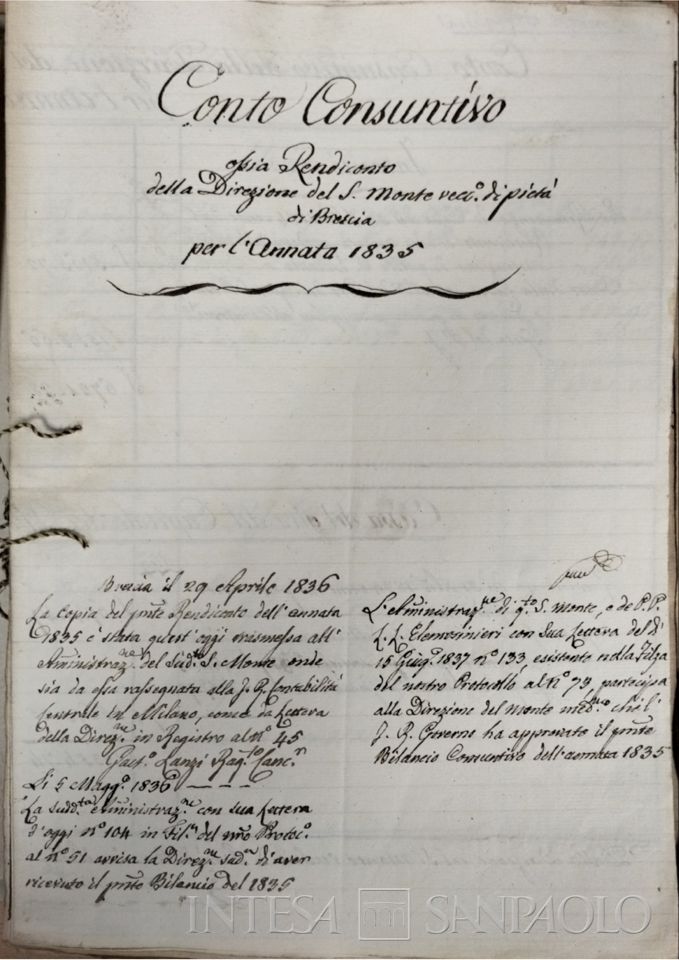 Conto Consuntivo
ossia Rendiconto
della Direzione del S. Monte vecc.º di pietà
di Brescia
per l'Annata 1835
Brescia il 29 Aprile 1836
La Copia del pnte Rendiconto dell'annata
1835 è stata quest'oggi trasmessa all'
Amministraz.ne del Sud.to S. Monte onde
sia da essa rassegnata alla I. R. Contabilità
Centrale in Milano, come da Lettera
della Direz.ne in Registro al nº 45
Gaet.º Lanzi Rag.to Canc.
Li 5 Magg.º 1836
La sudd.ta Amministraz.ne con sua Lettera
d'oggi nº 104 in Fil. del nro Protoc.º
al nº 51 avvisa la Direz.ne sud. d'aver
ricevuto il pnte Bilancio del 1835
L'Amministraz.ne di q.to S. Monte, e de P. P.
L. L. Elemosinieri con sua Lettera del dì
15 Giug.º 1837 nº 133, esistente nella Filza
del nostro Protocollo al Nº 79, partecipa
alla Direzione del Monte med.mo che l'
I. R. Governo ha approvato il pnte
Bilancio Consuntivo dell'annata 1835
INTESA SANPAOLO